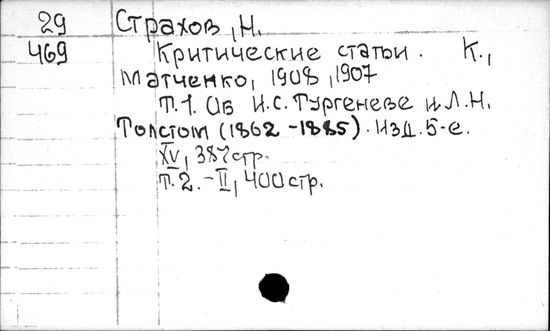 29 Страхов, Н.
469 Критические статьи. К.,
Матченко, 1908, 1907
Т.1. Об И.С. Тургеневе и Л.Н.
Толстом (1862-1885). Изд. 5-е.
XV, 387 стр.
Т.2. - II, 400 стр.